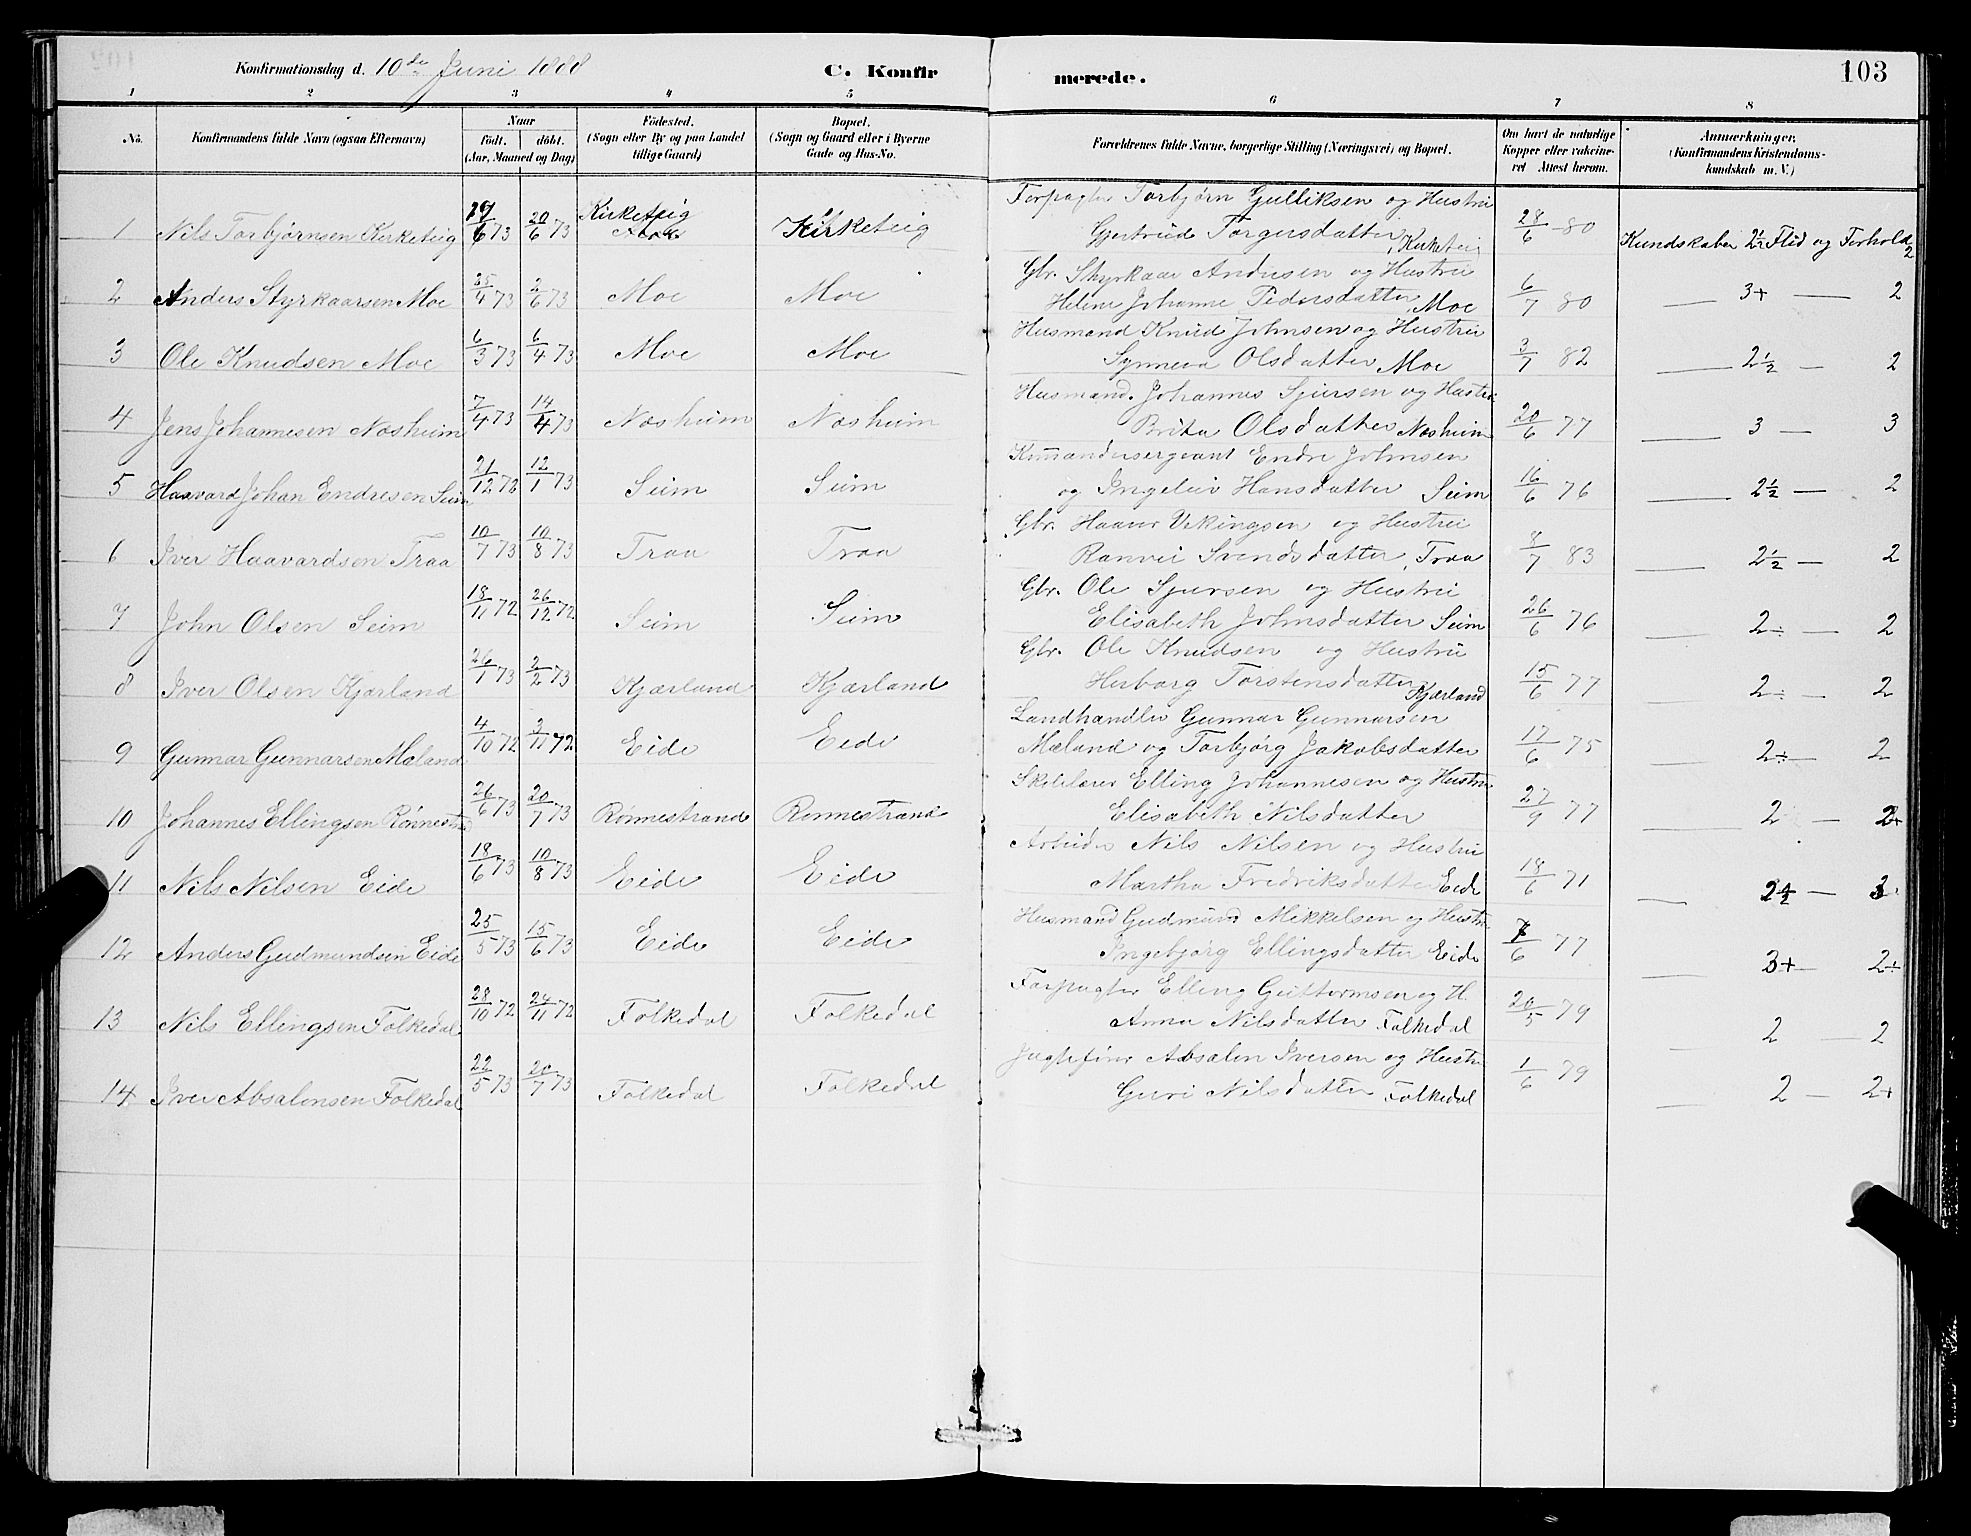 Konfirmationsdag d. 10de Juni 1888 C. Konfirmerede. 103
1 2 3 4 5 6 7 8
No. Konfirmandens fulde Navn (ogsaa Efternavn) Naar födt. döbt. (Aar, Maaned og Dag) Födested. (Sogn eller By og paa Landet tillige Gaard) Bopæl. (Sogn og Gaard eller i Byerne Gade og Hus-No. Forældrenes fulde Navne, borgerlige Stilling (Næringsvei) og Bopæl. Om havt de naturlige Kopper eller vakcineret Attest herom. Anmærkninger. (Konfirmandens Kristendomskundskab m. V.)
Forpagter Torbjørn Gulliksen og Hustru
1 Nils Torbjørnsen Kirketeig 6 73 20/6 73 Kirketeig Kirketeig Gjertrud Torgersdatter, Kirketeig 28/6 80 Kundskaber 2½ Flid og Forhold 2
Gbr. Styrkaar Andersen og Hustru
2 Anders Styrkaarsen Moe 25/4 73 2/6 73 Moe Moe Helene Johanne Pedersdatter, Moe 6/7 80 — 3+ — 2
Husmand Knud Johnsen og Hustru
3 Ole Knudsen Moe 6/3 73 6/4 73 Moe Moe Synneva Olsdatter Moe 3/7 82 — 2½ — 2
Husmand. Johannes Sjursen og Hustru
4 Jens Johannesen Næsheim 7/4 73 14/4 73 Næsheim Næsheim Brita Olsdatter Næsheim 20/6 77 — 3 — 3
Kommandersergeant Endre Johnsen
5 Haavard Johan Endresen Seim 21/12 72 12/1 73 Seim Seim og Ingeleiv Hansdatter Seim 16/6 76 — 2½ — 2
Gbr. Haavar Vikingsen og Hustru
6 Iver Haavardsen Traa 10/7 73 10/8 73 Traa Traa Ranvei Svendsdatter, Traa 8/7 83 — 2½ — 2
Gbr. Ole Sjursen og Hustru
7 John Olsen Seim 18/11 72 26/12 72 Seim Seim Elisabeth Johnsdatter Seim 26/6 76 — 2÷ — 2
Gbr. Ole Knudsen og Hustru
8 Iver Olsen Kjærland 26/1 73 2/2 73 Kjærland Kjærland Herborg Torstensdatter Kjærland 15/6 77 — 2÷ — 2
Landhandler Gunnar Gunnarsen
9 Gunnar Gunnarsen Mæland 4/10 72 3/11 72 Eide Eide Mæland og Torbjørg Jakobsdatter 17/6 75 — 2÷ — 2
Skolelærer Elling Johannesen og Hustru
10 Johannes Ellingsen Rønnestrand 26/6 73 20/7 73 Rønnestrand Rønnestrand Elisabeth Nilsdatter 27/9 77 — 2 — 2+
Arbeider Nils Nilsen og Hustru
11 Nils Nilsen Eide 18/6 73 10/8 73 Eide Eide Martha Fredriksdatter Eide 18/6 71 — 2½ —
Husmand Gudmund Mikkelsen og Hustru
12 Anders Gudmundsen Eide 25/5 73 15/6 73 Eide Eide Ingebjørg Ellingsdatter Eide 77 — 3+ — 2+
Forpagter Elling Guttormsen og H.
13 Nils Ellingsen Folkedal 28/10 72 24/11 72 Folkedal Folkedal Anna Nilsdatter Folkedal 20/5 79 — 2 — 2
Jagtefører Absalon Iversen og Hustru
14 Iver Absalonsen Folkedal 22/5 73 20/7 73 Folkedal Folkedal Guri Nilsdatter Folkedal 1/6 79 — 2 — 2+